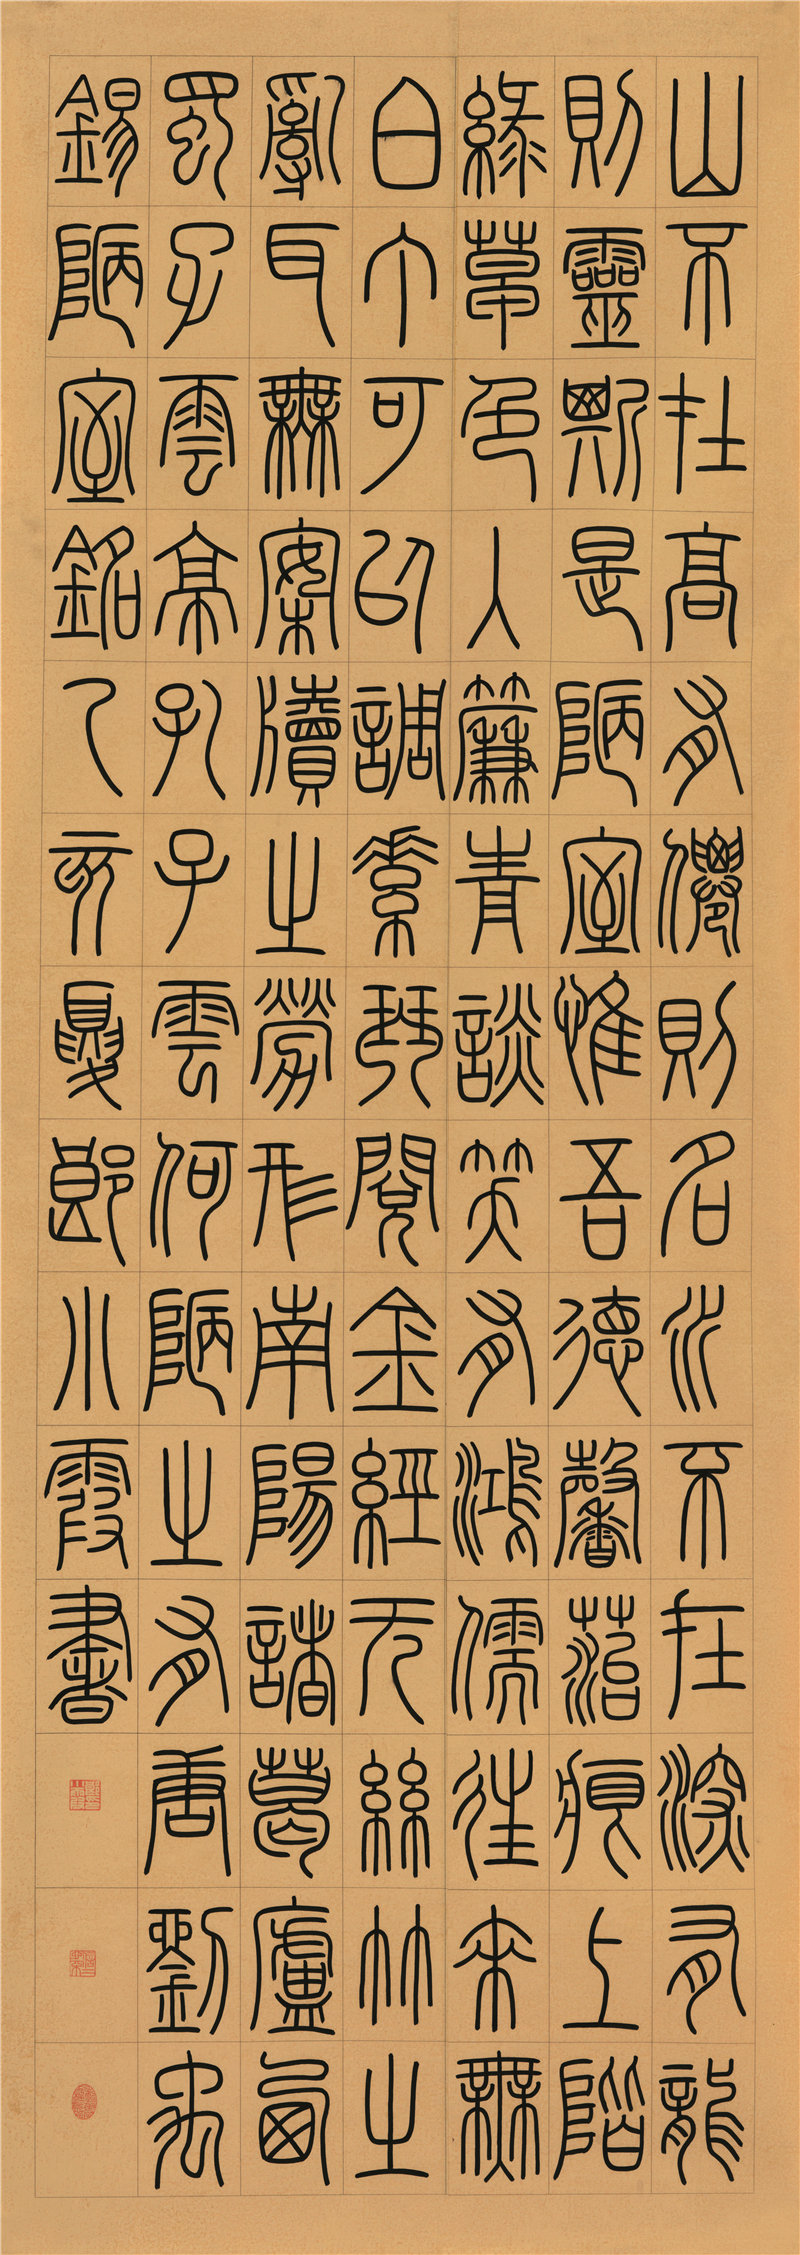 山不在高有僊則名水不在深有龍
則靈斯是陋室惟吾德馨菭痕上階
綠草色入簾青談笑有鴻儒往來無
白丁可以調素琴閱金經无絲竹之
亂耳無案牘之勞形南陽諸葛廬西
蜀子雲亭孔子雲何陋之有唐劉禹
錫陋室銘乙亥夏小霞書